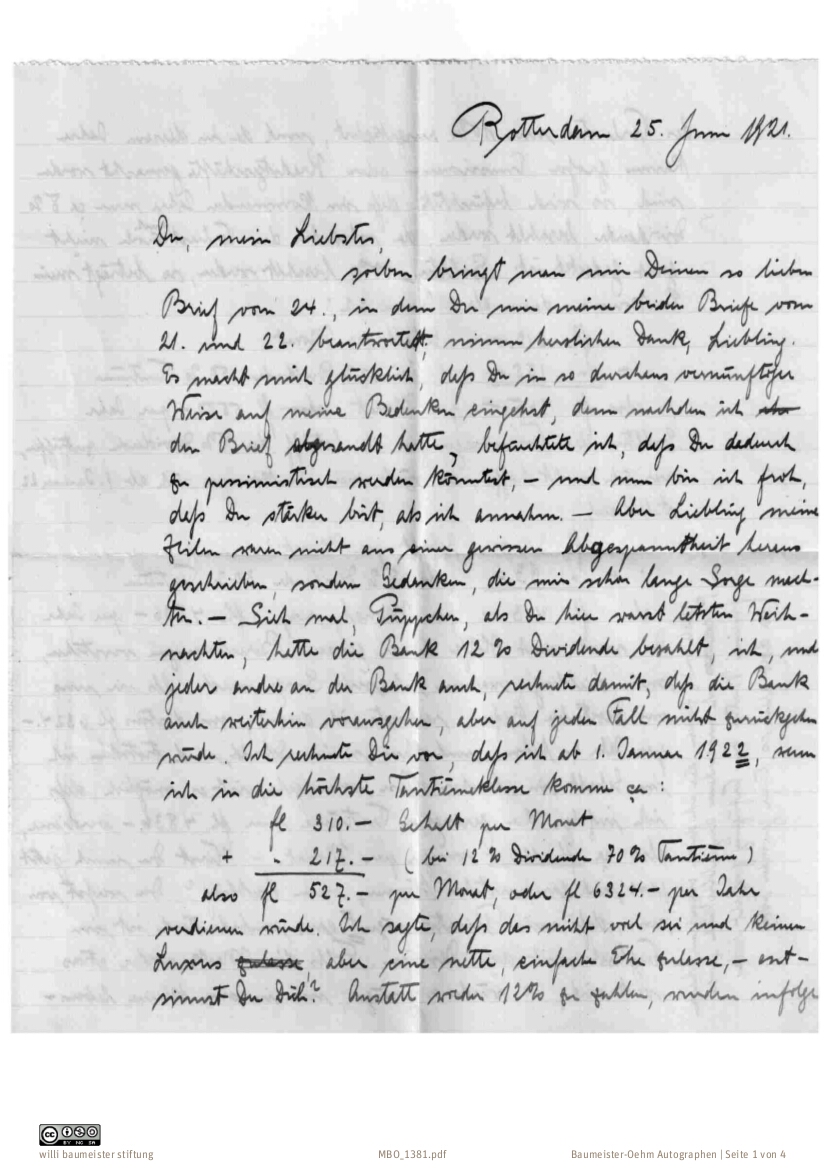 Rotterdam 25. Juni 1921.
Du, mein Liebstes,
soeben bringt man mir Deinen so lieben
Brief vom 24., in dem Du mir meine beiden Briefe vom
21. und 22. beantwortest, nimm herzlichen Dank, Liebling.
Es macht mich glücklich, dass Du in so durchaus vernünftiger
Weise auf meine Bedenken eingehst, denn nachdem ich
den Brief abgesandt hatte, befürchtete ich, dass Du dadurch
zu pessimistisch werden könntest, – und nun bin ich froh,
dass Du stärker bist, als ich annahm. – Aber Liebling meine
Zeilen waren nicht aus einer gewissen Abgespanntheit heraus
geschrieben, sondern Gedanken, die mir schon lange Sorge mach-
ten. – Sieh mal, Püppchen, als Du hier warst letzten Weih-
nachten, hatte die Bank 12 % Dividende bezahlt, ich, und
jeder andre an der Bank auch, rechnete damit, dass die Bank
auch weiterhin vorausgehen, aber auf jeden Fall nicht zurückgehn
würde. Ich rechnete Dir vor, dass ich ab 1. Januar 1922, wenn
ich in die höchste Tantièmeklasse komme ca:
fl 310.– Gehalt per Monat
+ - 217.– (bei 12 % Dividende 70 % Tantième)
also fl 527.– per Monat, oder fl 6324.– per Jahr
verdienen würde. Ich sagte, dass das nicht viel sei und keinen
Luxus zulasse, aber eine nette, einfache Ehe zulasse, – ent-
sinnst Du Dich? Anstatt wieder 12 % zu zahlen, wurden infolge
willi baumeister stiftung
MBO_1381.pdf
Baumeister-Oehm Autographen | Seite 1 von 4
CC BY NC SA